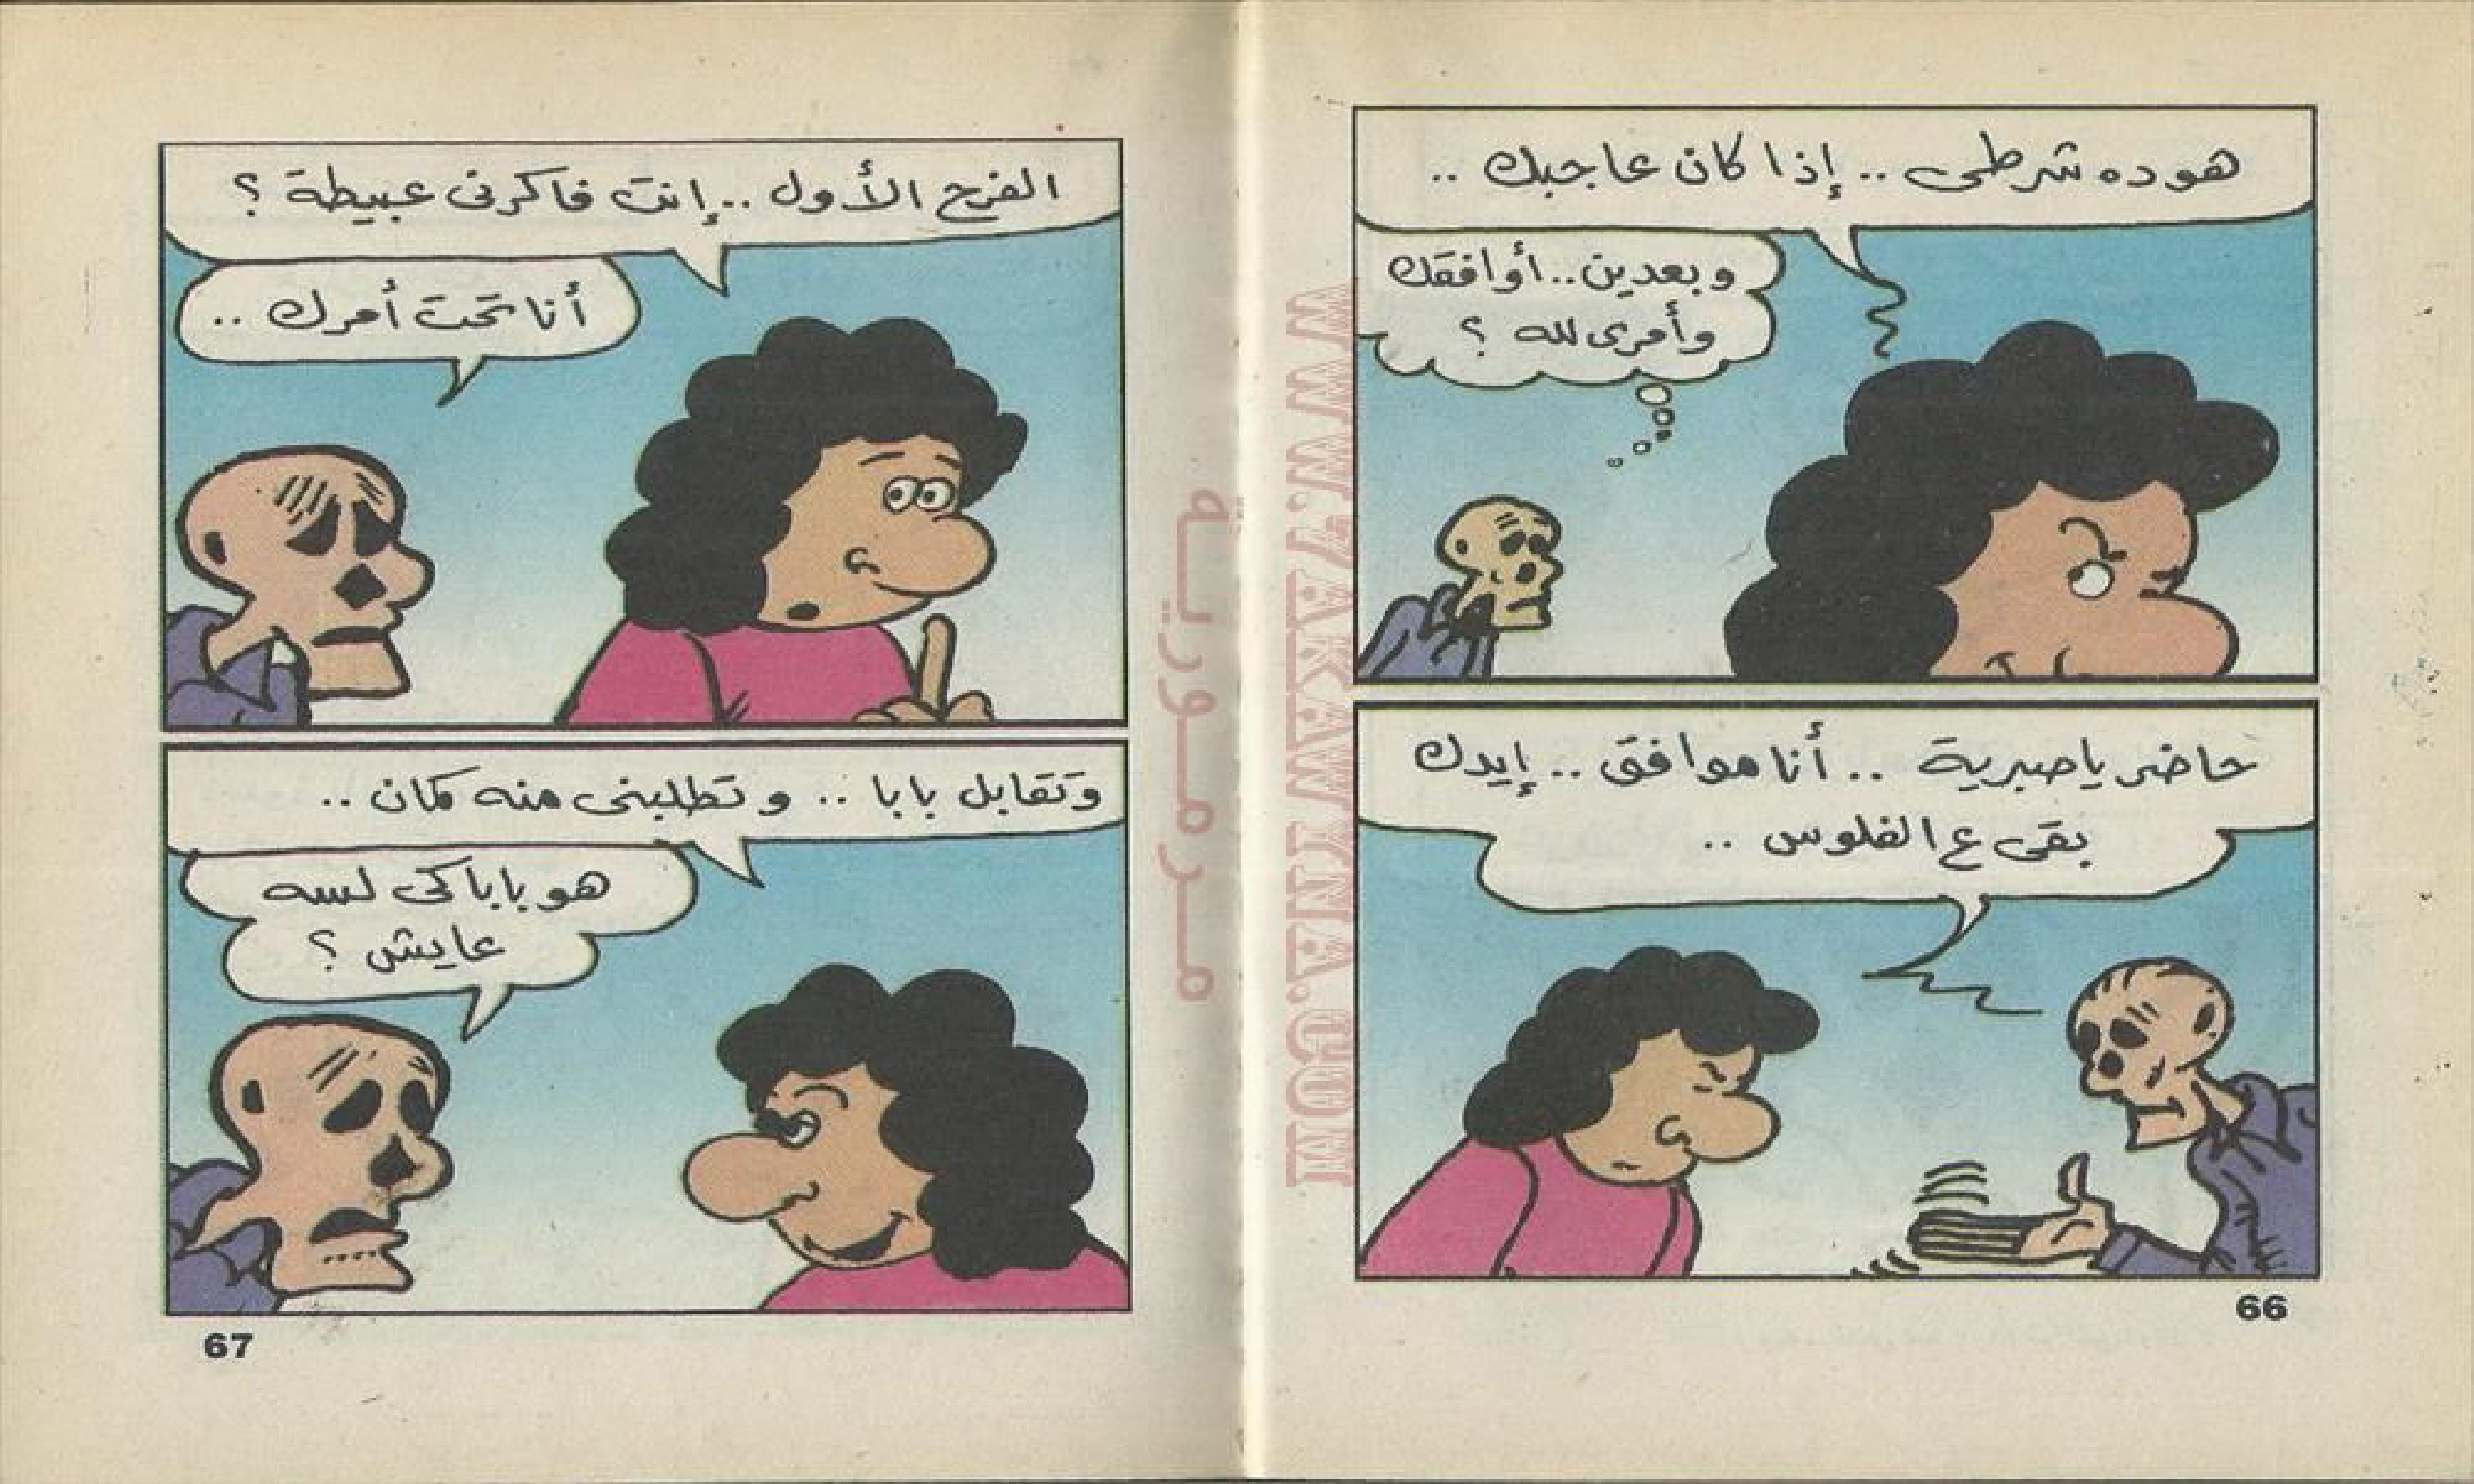 هو ده شرطى .. إذا كان عاجبك ..
وبعدين .. أوافقك
وأمرى لله ؟
حاضر يا صبرية .. أنا موافق .. إيدك
بقى ع الفلوس ..
66
الفرح الأول .. إنت فاكرنى عبيطة ؟
أنا تحت أمرك ..
وتقابل بابا .. وتطلبنى منه كمان ..
هو باباكى لسه
عايش ؟
67
مرمورية
WWW.7AKAWENA.COM